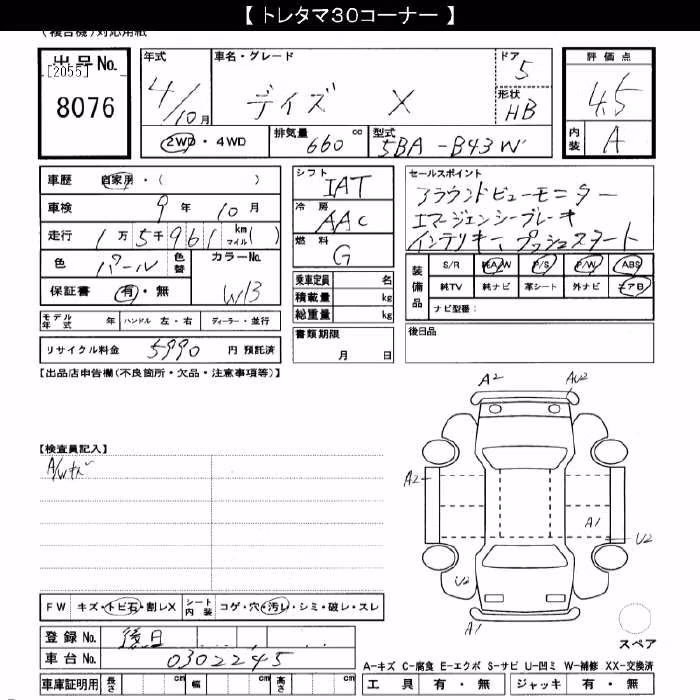 【 トレタマ30コーナー 】
(複合機)対応用紙
出品No.
[2055]
8076
年式
4/10月
車名・グレード
デイズ X
ドア
5
形状
HB
評価点
4.5
内装
A
2WD・4WD
排気量
660 cc
型式
5BA-B43W
車歴 自家用・( )
車検 9年 10月
走行 1万5千961 km マイル( )
色 パール 色替
カラーNo.
W13
保証書 有・無
モデル年式 年 ハンドル 左・右 ディーラー・並行
リサイクル料金 5990 円 預託済
シフト
IAT
冷房
AAC
燃料
G
乗車定員 名
積載量 kg
総重量 kg
書類期限
月 日
セールスポイント
アラウンドビューモニター
エマージェンシーブレーキ
インテリキー プッシュスタート
装備品
S/R 純A/W P/S P/W ABS
純TV 純ナビ 革シート 外ナビ エアB
ナビ型番:
後日品
【出品店申告欄(不良箇所・欠品・注意事項等)】
【検査員記入】
A/Wキズ
A2
AU2
A2
A1
U2
U2
A1
スペア
FW キズ・トビ石・割レX シート内装 コゲ・穴・汚レ・シミ・破レ・スレ
登録No. 後日
車台No. 0302245
車庫証明用 長さ cm 幅 cm 高さ cm
A-キズ C-腐食 E-エクボ S-サビ U-凹ミ W-補修 XX-交換済
工具 有・無 ジャッキ 有・無